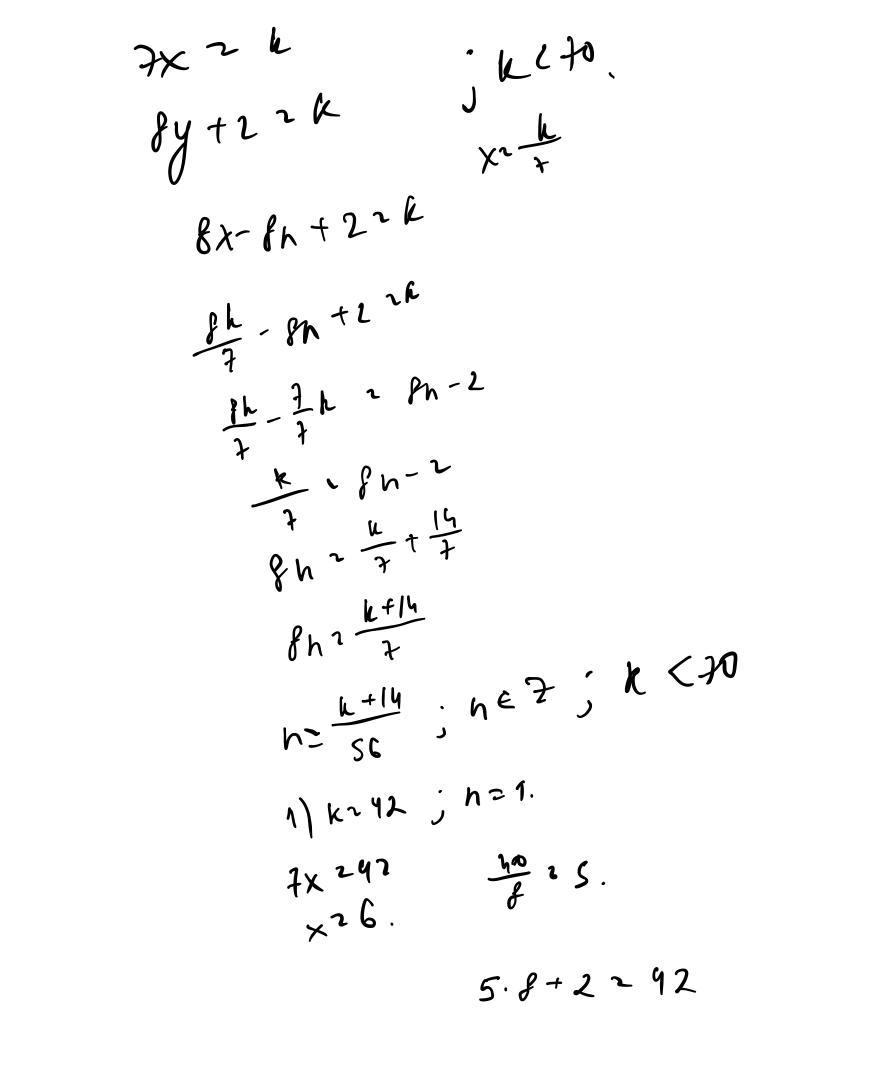 7x = k ; k < 70.
8y + 2 = k x = k/7
8x - 8n + 2 = k
8k/7 - 8n + 2 = k
8k/7 - 7/7 k = 8n - 2
k/7 = 8n - 2
8n = k/7 + 14/7
8n = k+14/7
n = k+14/56 ; n ∈ Z ; k < 70
1) k = 42 ; n = 1.
7x = 42 40/8 = 5.
x = 6.
5·8 + 2 = 42